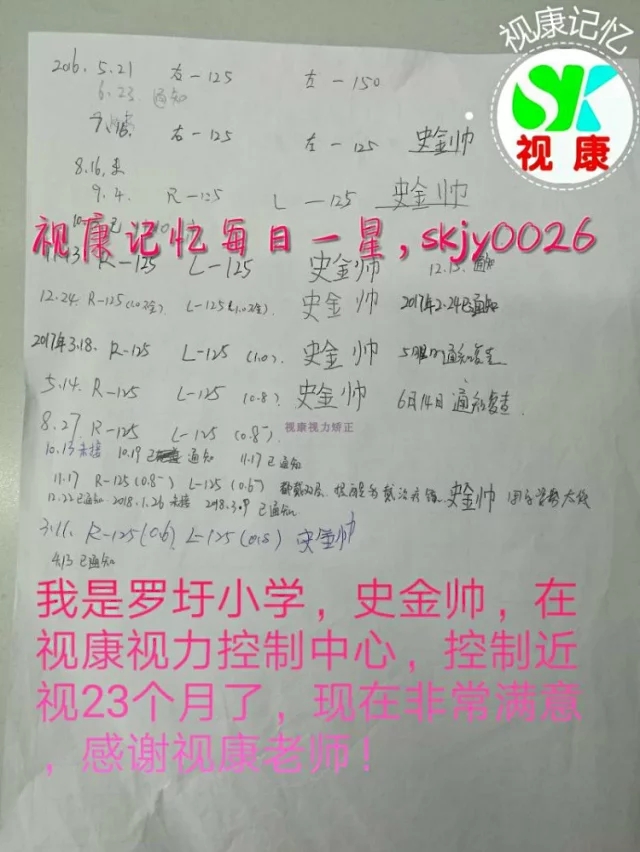 视康记忆
SK
视康
2016.5.21 右-125 左-150
6.23.通知
右-125 左-125 史金帅
8.16,
9.4. R-125 L-125 史金帅
视康记忆每日一星,skjy0026
R-125 L-125 史金帅 12.15.通知
12.24. R-125(1.0) L-125(1.0) 史金帅 2017年2.24已通知
2017年3.18. R-125 L-125 (1.0). 史金帅 通知复查
5.14. R-125 L-125 (0.8) 史金帅 6月14日通知复查.
8.27. R-125 L-125 (0.8⁻)
视康视力矫正
10.13未接 10.19已通知 11.17已通知
11.17 R-125(0.8⁻) L-125(0.6⁻) 史金帅
12.22已通知 2018.1.26未接 2018.3.9已通知.
3.11. R-125(0.6) L-125(0.8) 史金帅
4.13已通知
我是罗圩小学，史金帅，在
视康视力控制中心，控制近
视23个月了，现在非常满意
，感谢视康老师！